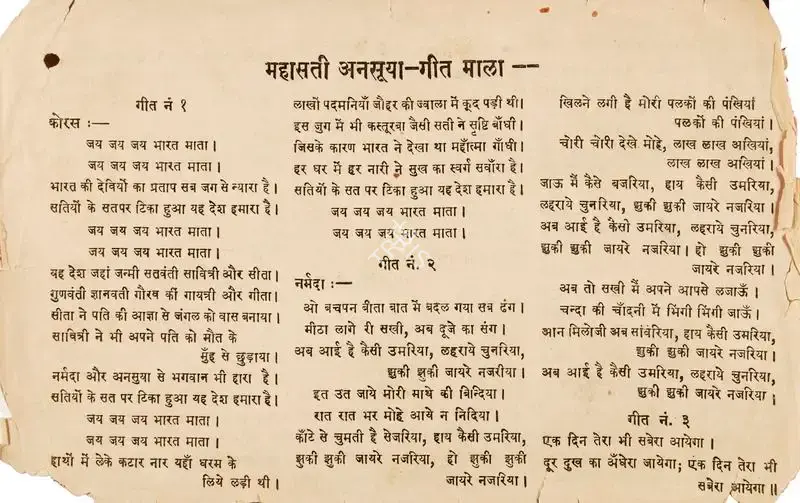 महासती अनसूया—गीत माला ——
गीत नं १
कोरस :—
जय जय जय भारत माता ।
जय जय जय भारत माता ।
भारत की देवियों का प्रताप सब जग से न्यारा है ।
सतियों के सतपर टिका हुआ यह देश हमारा है ।
जय जय जय भारत माता ।
जय जय जय भारत माता ।
यह देश जहां जन्मी सतवंती सावित्री और सीता ।
गुणवंती ज्ञानवती गौरव कीं गायत्री और गीता ।
सीता ने पति की आज्ञा से जंगल को वास बनाया ।
सावित्री ने भी अपने पति को मौत के
मुँह से छुड़ाया ।
नर्मदा और अनसुया से भगवान भी हारा है ।
सतियों के सत पर टिका हुआ यह देश हमारा है ।
जय जय जय भारत माता ।
जय जय जय भारत माता ।
हाथों में लेके कटार नार यहाँ धरम के
लिये लड़ी थी ।
लाखों पदमनियाँ जौहर की ज्वाला में कूद पड़ी थी ।
इस जुग में भी कस्तूरबा जैसी सती न सृष्टि बाँधी ।
जिसके कारण भारत ने देखा था महाँत्मा गाँधी ।
हर घर में हर नारी ने सुख का स्वर्ग सवाँरा है ।
सतियों के सत पर टिका हुआ यह देश हमारा है ।
जय जय जय भारत माता ।
जय जय जय भारत माता ।
गीत नं. २
नर्मदा :—
ओ बचपन बीता बात में बदल गया सब ढंग ।
मीठा लागे री सखी, अब दूजे का संग ।
अब आई है कैसी उमरिया, लहराये चुनरिया,
झुकी झुकी जायरे नजरीया ।
इत उत जाये मोरी माथे की बिन्दिया ।
रात रात भर मोहे आये न निदिया ।
काँटे से चुमती है सेजरिया, हाय कैसी उमरिया,
झुकी झुकी जायरे नजरिया, हो झुकी झुकी
जायरे नजरिया ।
खिलने लगी है मोरी पलकों की पंखियां
पलकों की पंखियां ।
चोरी चोरी देखे मोहे, लाख लाख अखियां,
लाख लाख अखियां ।
जाऊ मैं कैसे बजरिया, हाय कैसी उमरिया,
लहराये चुनरिया, झुकी झुकी जायरे नजरिया ।
अब आई है कैसो उमरिया, लहराये चुनरिया,
झुकी झुकी जायरे नजरिया । हो झुकी झुकी
जायरे नजरिया ।
अब तो सखी मैं अपने आपसे लजाऊँ ।
चन्दा की चाँदनी में भिंगी भिंगी जाऊँ ।
आन मिलोजी अब सांवरिया, हाय कैसी उमरिया,
झुकी झुकी जायरे नजरिया ।
अब आई है कैसी उमरिया, लहराये चुनरिया,
झुकी झुकी जायरे नजरिया ।
गीत नं. ३
एक दिन तेरा भी सबेरा आयेगा ।
दूर दुख का अँधेरा जायेगा; एक दिन तेरा भी
सबेरा आयेगा ॥